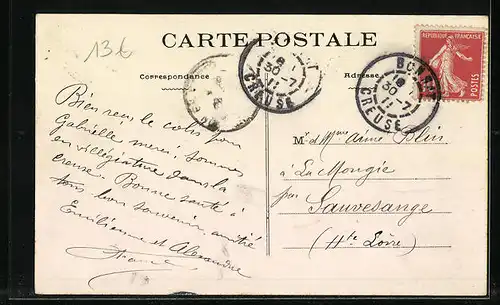 13€
CARTE POSTALE
Correspondance
Adresse
RÉPUBLIQUE FRANÇAISE
POSTES
30 -7
11
CREUSE
BONNAT
30 -7
11
CREUSE
Bien reçu le colis pour
Gabrielle merci, sommes
en villégiature dans la
creuse. Bonne santé à
tous bon souvenir amitié
Emilienne et Alexandre
Mr et Mme Aimé
à La Mongie
par Sauvesange
(Hte Loire)